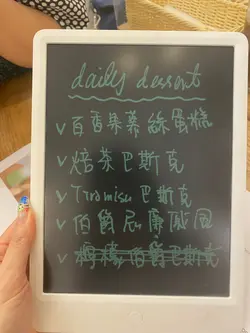 daily dessert
✓百香果慕絲蛋糕
✓焙茶巴斯克
✓Tiramisu巴斯克
✓伯爵尼廉戚風
✓檸檬伯爵巴斯克